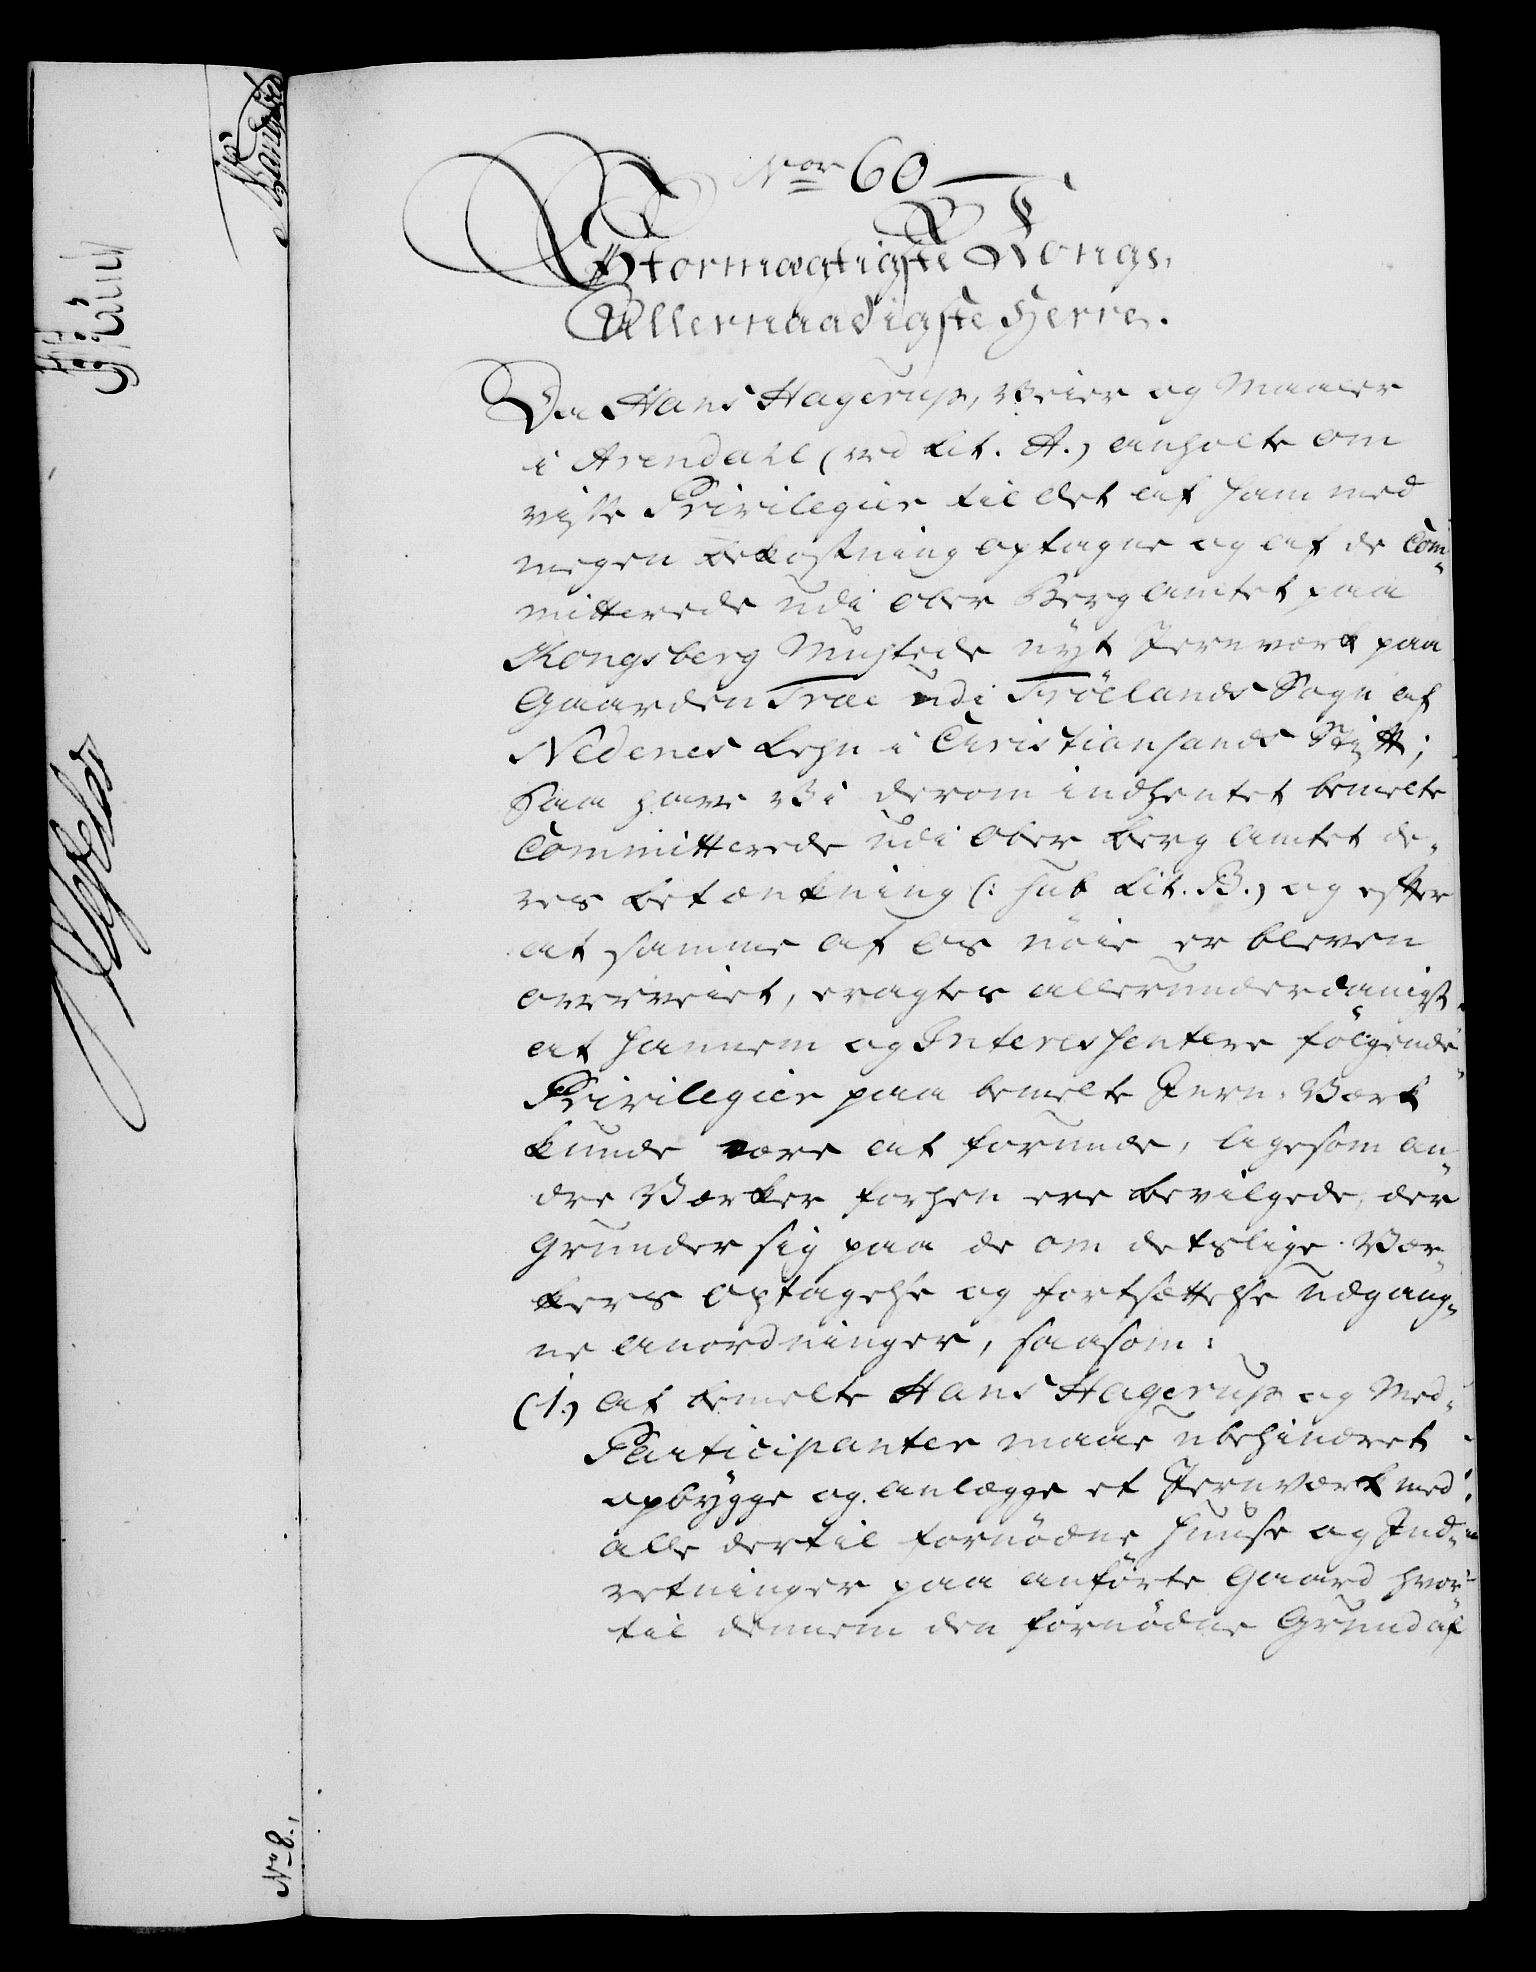 Nor 60
Stormægtigste Konge,
Allernaadigste Herre.
Da Hans Hagerup, Veier og Maaler
i Arendahl (ved Lit. A.) anholte om
visse Privilegier til det af ham med
megen bekostning optagne og af de Com¬
mitterede udi Ober Berg Amtet paa
Kongsberg Muhtede nyt Jernverk paa
Gaarden Trae udi Fröelands Sogn af
Nedenes Lehn i Christiansands Stift;
Saa have Vi derom indhentet bemelte
Committerede udi Ober Berg Amtet de¬
res betænkning (: sub Lit. B.) og efter
at samme af os nöie er bleven
overveiet, eragter allerunderdanigst
at hannem og Interessentere fölgende
Privilegier paa bemelte Jern-Værk
kunde være at forunde, ligesom an¬
dre Værker forhen ere bevilgede, der
grunder sig paa de om detslige Vær¬
kers optagelse og fortsættelse udgang¬
ne anordninger, saasom:
(1.) At bemelte Hans Hagerup og Med¬
Participanter maae ubehindret
opbygge og anlægge et Jernværk med
alle dertil fornödne Huuse og Ind¬
retninger paa anförte Gaard hvor¬
til dennem den fornödne Grund af
No 8.